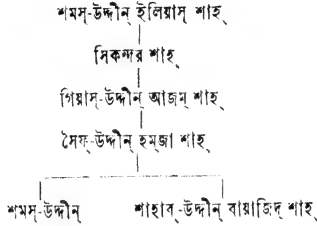 শমস্-উদ্দীন্ ইলিয়াস্ শাহ্
সিকন্দর শাহ্
গিয়াস্-উদ্দীন্ আজম্ শাহ্
সৈফ্-উদ্দীন্ হম্জা শাহ্
শমস্-উদ্দীন্ শাহাব্-উদ্দীন্ বায়াজিদ্ শাহ্